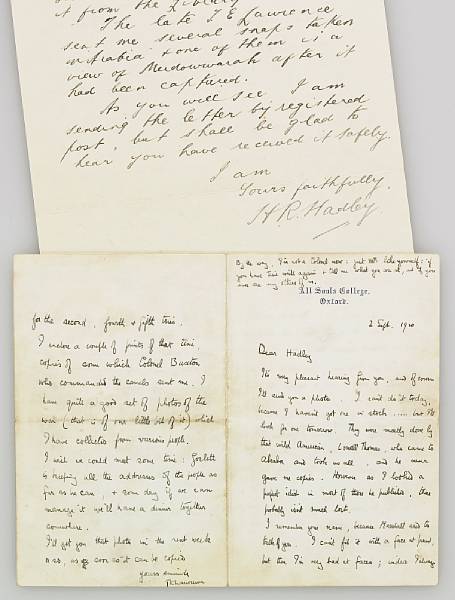 it from the Library
The late T E Lawrence
sent me several snaps taken
in Arabia & one of them is a
view of Mudowwarah after it
had been captured.
As you will see I am
sending the letter by registered
post, but shall be glad to
hear you have received it safely.
I am
Yours faithfully,
H R. Hadley
for the second, fourth & fifth time.
I enclose a couple of prints of that time,
copies of some which Colonel Buxton
who commanded the camels sent me. I
have quite a good set of photos of the
war (that is of our little bit of it) which
I have collected from various people.
I wish we could meet some time: Goslett
is keeping all the addresses of the people as
far as he can, & some day if we can
manage it we'll have a dinner together
somewhere.
I'll get you that photo in the next week
or so, as soon as it can be copied
yours sincerely
By the way, I'm not a Colonel now: just Mr. like yourself: if
you have time write again & tell me what you are at, and if you
All Souls College,
Oxford.
2 Sept.
Dear Hadley
It's very pleasant hearing from you, and of course
I'll send you a photo. I can't do it today,
because I haven't got one in stock ..... but I'll
look for one tomorrow. They were mostly done by
that wild American, Lowell Thomas, who came to
Akaba and took us all, and he never
gave me copies. However as I looked a
perfect idiot in most of those he published, that's
probably isn't much lost.
I remember your name, because Marshall used to
talk of you. I can't fit it with a face at present,
but then I'm very bad at faces; unless I